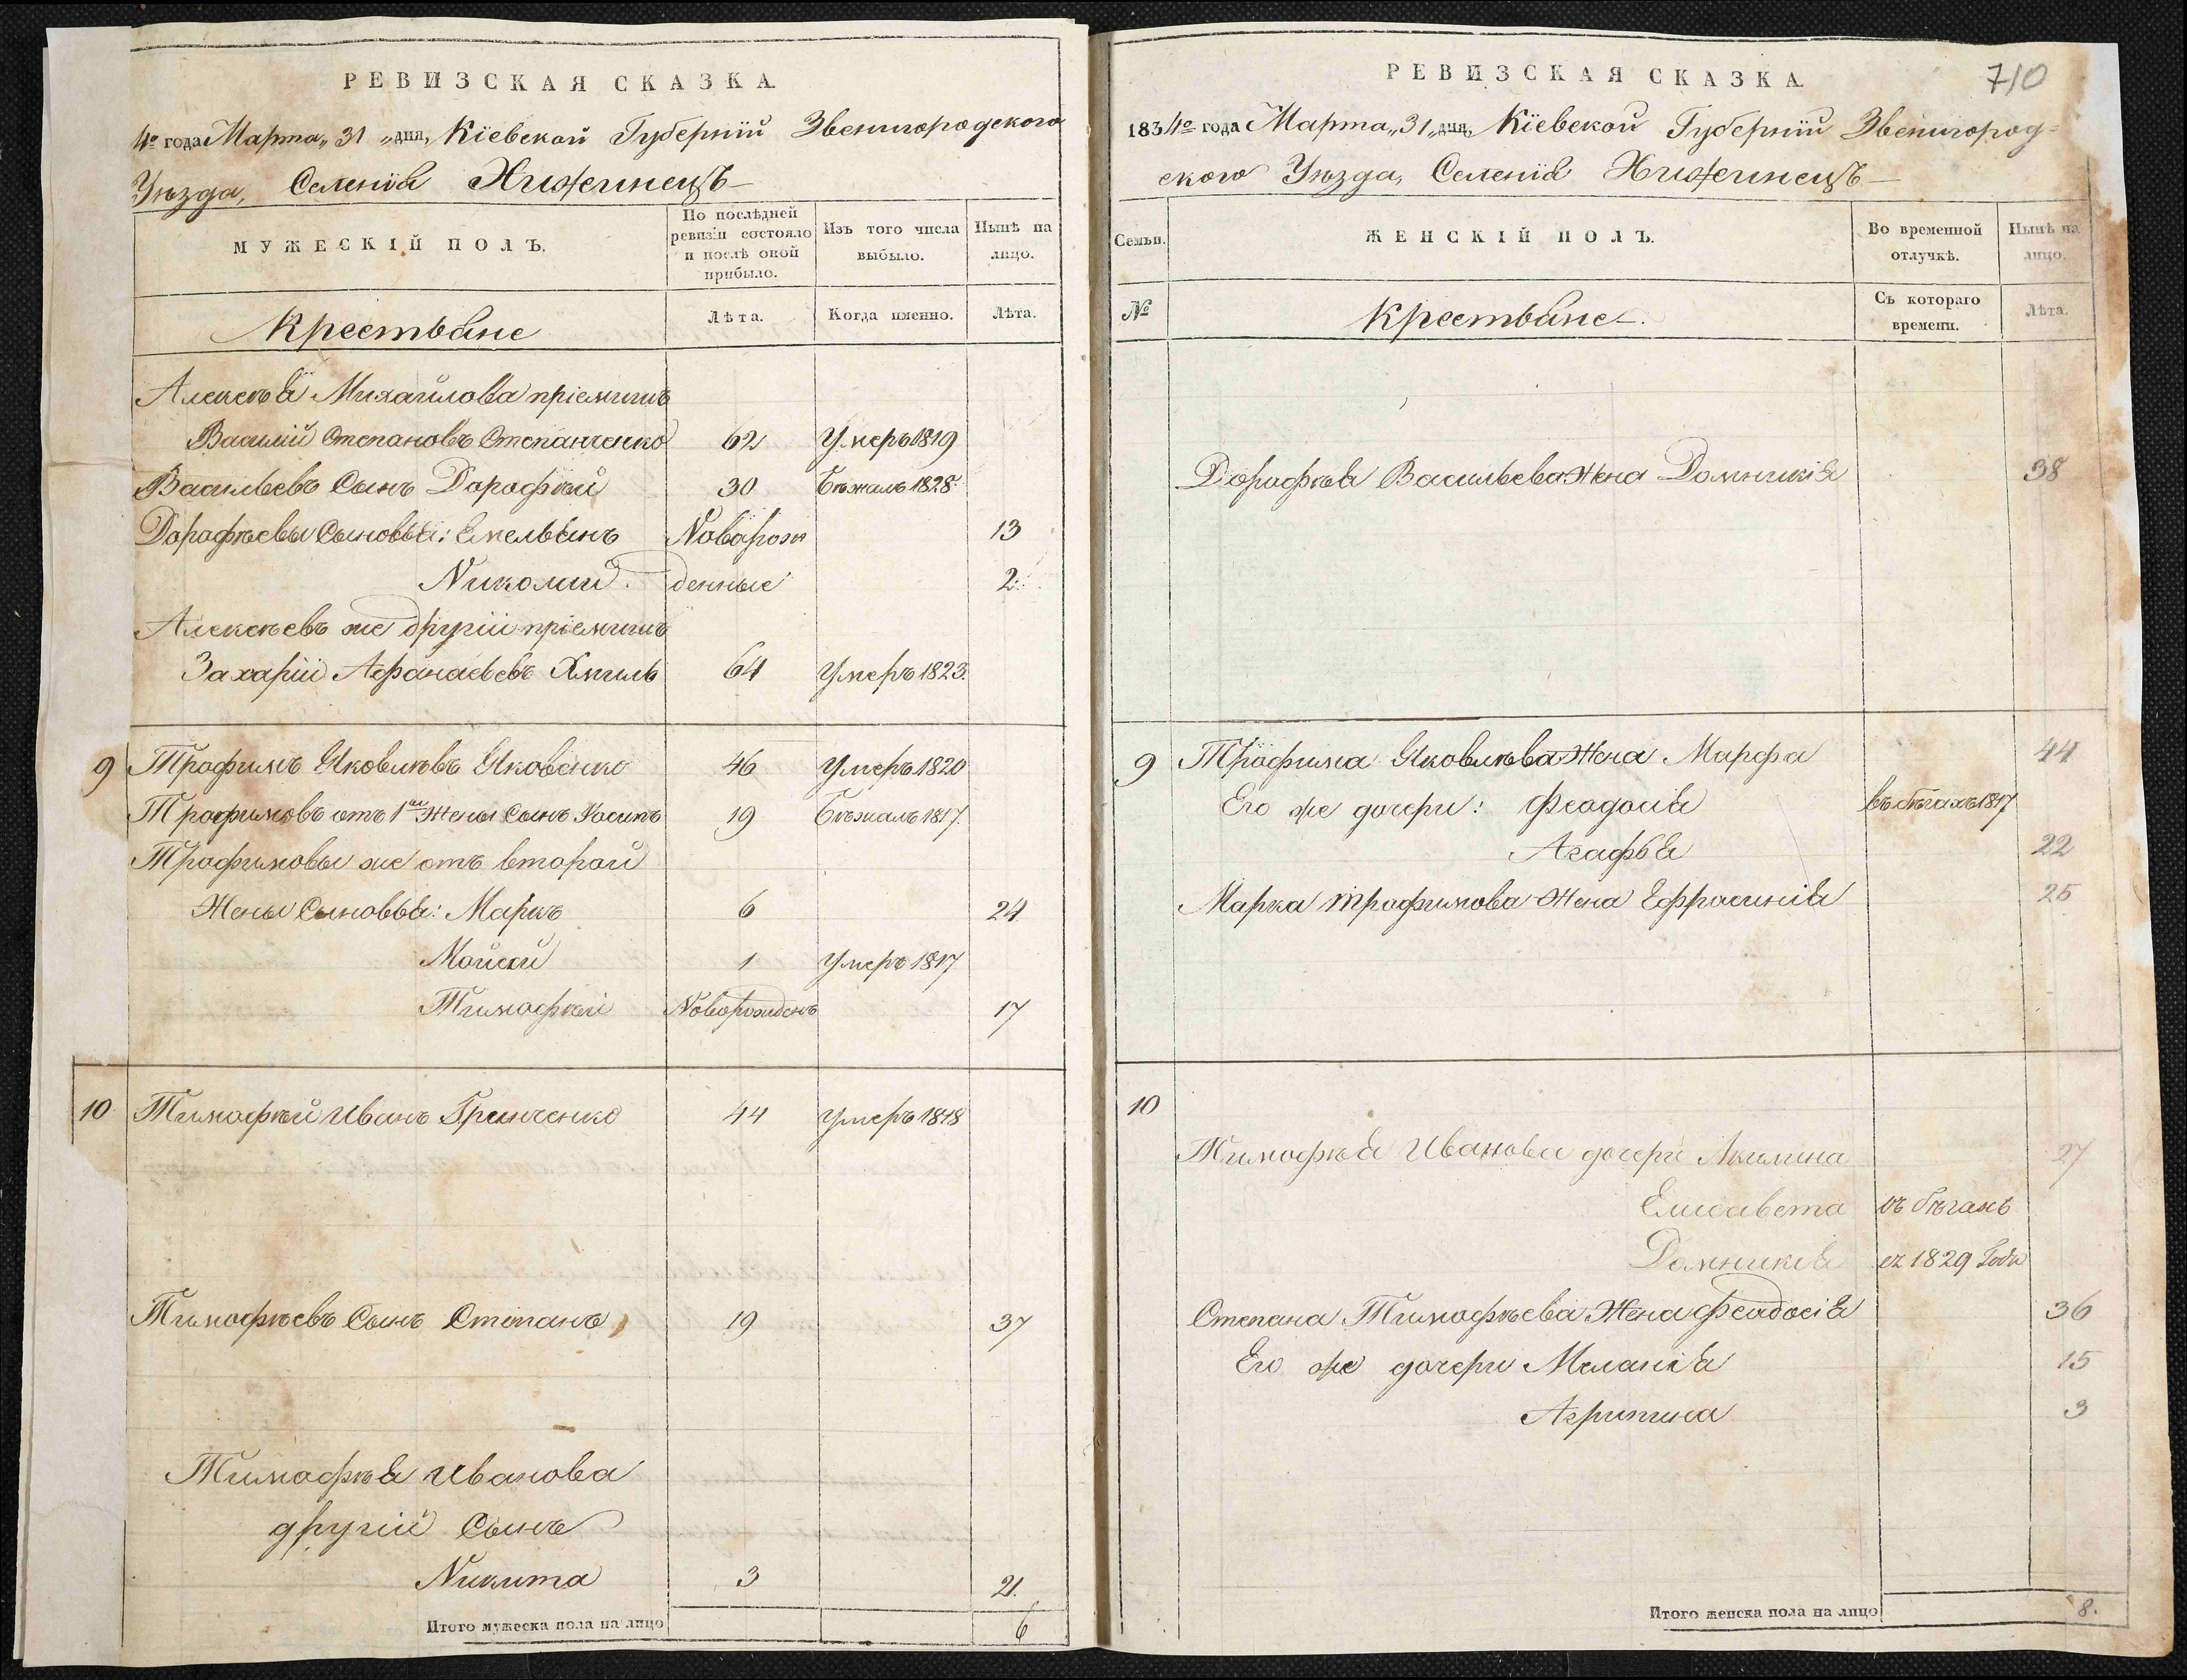 РЕВИЗСКАЯ СКАЗКА.
4го года Марта „31„ дня, Кіевской Губерніи Звенигородского
Уѣзда, Селенія Хижинецъ
МУЖЕСКІЙ ПОЛЪ.
По послѣдней ревизіи состояло и послѣ оной прибыло.
Изъ того числа выбыло.
Нынѣ на лицо.
Крестьяне
Лѣта.
Когда именно.
Лѣта.
Алексѣя Михайлова пріемишъ
Василій Степановъ Степанченко 62 Умеръ 1819
Васильевъ Сынъ Дорофѣй 30 Бѣжалъ 1828.
Дорофѣевы Сыновья: Емельянъ Новорож 13
Николай. денные 2.
Алексѣевъ же другій пріемишъ
Захарій Афанасьевъ Хмиль 64 Умеръ 1823.
9 Трофимъ Яковлѣвъ Яковенко 46 Умеръ 1820
Трофимовъ отъ 1ой Жены Сынъ Іосипъ 19 Бѣжалъ 1817.
Трофимовы же отъ второй
Жены Сыновья: Маркъ 6 24
Мойсей 1 Умеръ 1817
Тимофѣй Новорожденъ 17
10 Тимофѣй Иванъ Гринченко 44 умеръ 1818
Тимофѣевъ Сынъ Степанъ 19 37
Тимофѣя Иванова
другій Сынъ
Никита 3 21.
Итого мужеска пола на лицо 6
РЕВИЗСКАЯ СКАЗКА.
710
1834го года Марта „31„ дня, Кіевской Губерніи Звенигород=
ского Уѣзда, Селенія Хижинецъ
Семьи.
ЖЕНСКІЙ ПОЛЪ.
Во временной отлучкѣ.
Нынѣ на лицо.
№
Крестьяне.
Съ котораго времени.
Лѣта.
Дорофѣя Васильева Жена Домникія 38
9 Трофима Яковлѣва Жена Марфа 44
Его же дочери: Феодосія въ бѣгахъ 1817
Агафья 22
Марка Трофимова Жена Ефросинія 25
10
Тимофѣя Иванова дочери Акилина 27
Елисавета въ бѣгахъ
Домникія съ 1829 Года
Степана Тимофѣева Жена Феодосія 36
Его же дочери Меланія 15
Агрипина 3
Итого женска пола на лицо 8.